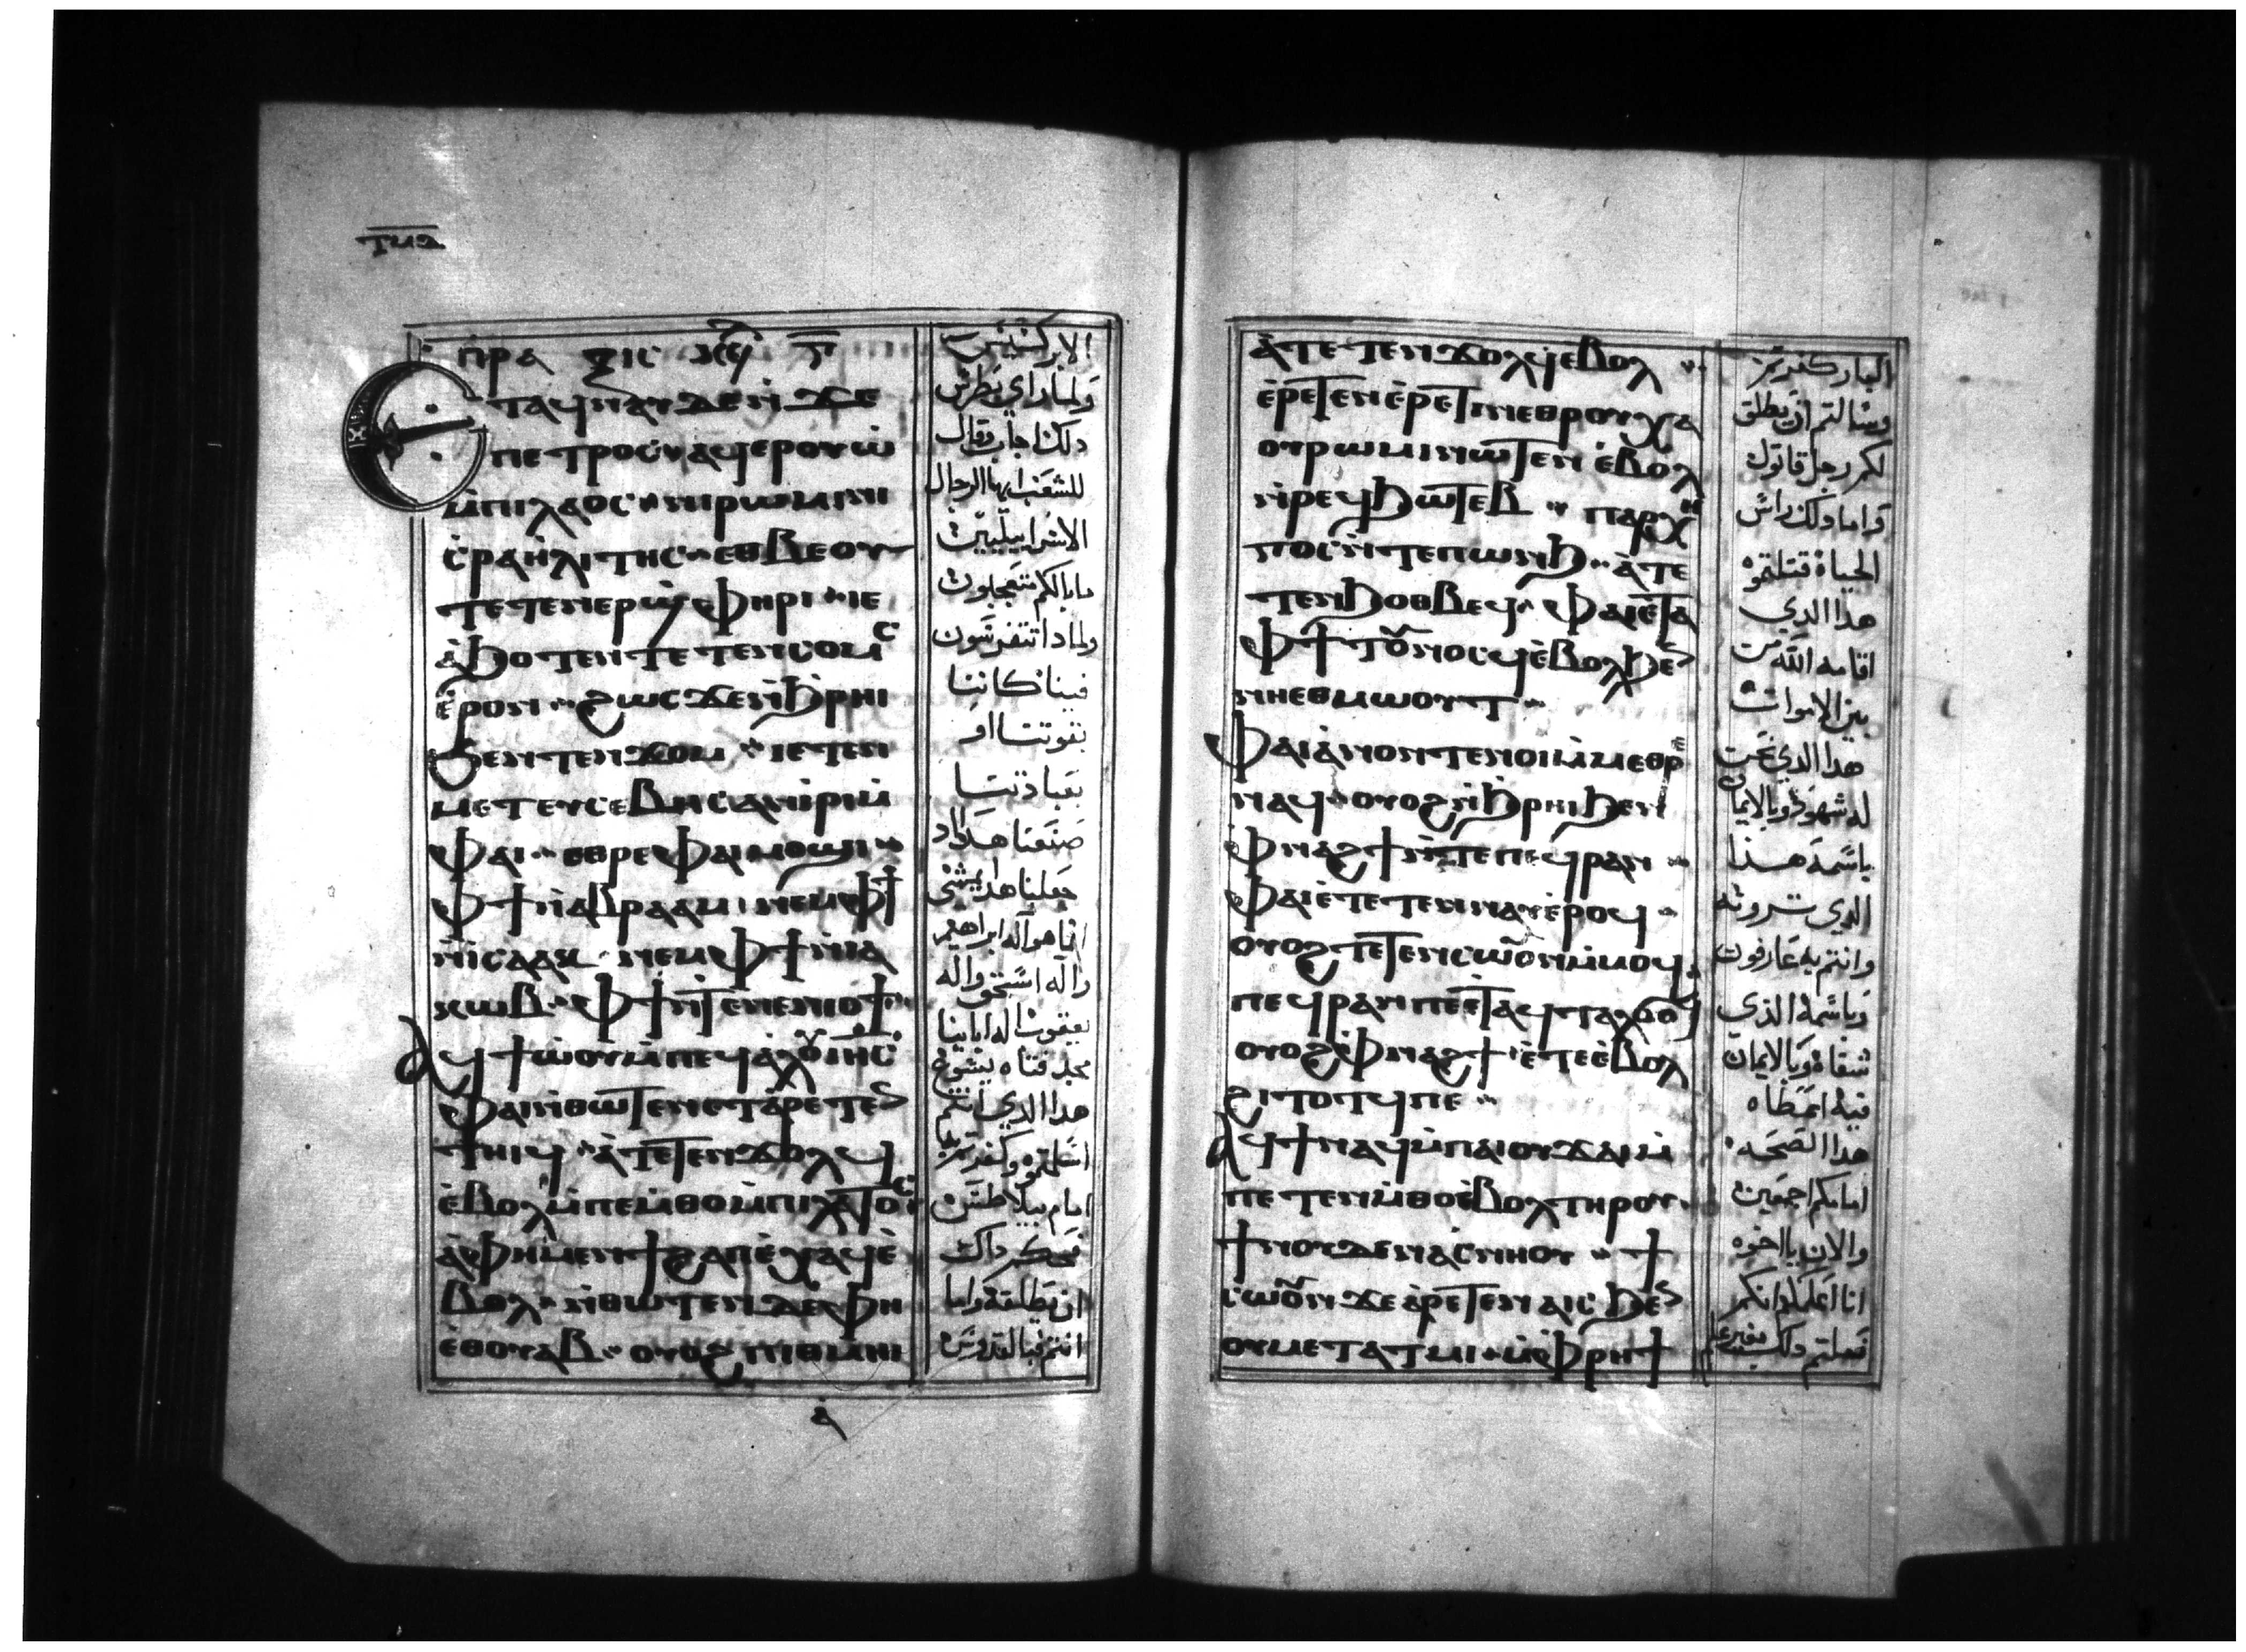 ⲡⲣⲁⲝⲓⲥ
ⲉⲧⲁϥⲛⲁⲩ ⲇⲉ ⲛϫⲉ
ⲡⲉⲧⲣⲟⲥ ⲛⲁϥⲉⲣⲟⲩⲱ
ⲙⲡⲓⲗⲁⲟⲥ ⲛⲓⲣⲱⲙⲓ ⲛⲓ
ⲥⲣⲁⲏⲗⲓⲧⲏⲥ ⲉⲑⲃⲉⲟⲩ
ⲧⲉⲧⲉⲛⲉⲣϣⲫⲏⲣⲓ ⲓⲉ
ⲁϧⲟⲧⲉⲛ ⲧⲉⲧⲉⲛⲥⲟⲙⲥ
ⲉⲣⲟⲛ ϩⲱⲥ ϫⲉ ⲛϧⲣⲏⲓ
ϧⲉⲛ ⲧⲉⲛϫⲟⲙ ⲓⲉ ⲧⲉⲛ
ⲙⲉⲧⲉⲩⲥⲉⲃⲏⲥ ⲁⲛⲓⲣⲓ ⲙ
ⲫⲁⲓ ⲉⲑⲣⲉ ⲫⲁⲓ ⲙⲟϣⲓ
ⲫϯ ⲛⲁⲃⲣⲁⲁⲙ ⲛⲉⲙ ⲫϯ
ⲛⲓⲥⲁⲁⲕ ⲛⲉⲙ ⲫϯ ⲛⲓⲁ
ⲕⲱⲃ ⲫϯ ⲛⲧⲉ ⲛⲉⲛⲓⲟϯ
ⲁϥϯⲱⲟⲩ ⲙⲡⲉϥⲁⲗⲟⲩ ⲓⲏⲥ
ⲫⲁⲓ ⲛⲑⲱⲧⲉⲛ ⲉⲧⲁⲣⲉⲧⲉⲛ
ⲧⲏⲓϥ ⲁⲧⲉⲧⲉⲛϫⲟⲗϥ
ⲉⲃⲟⲗ ⲙⲡⲉⲙⲑⲟ ⲙⲡⲓⲗⲁⲧⲟⲥ
ⲁⲫⲏ ⲙⲉⲛ ϯϩⲁⲡ ⲉⲭⲁϥ ⲉ
ⲃⲟⲗ ⲛⲑⲱⲧⲉⲛ ⲇⲉ ⲫⲏ
ⲉⲑⲟⲩⲁⲃ ⲟⲩⲟϩ ⲡⲓⲑⲙⲏⲓ
الابركسيس
ولما راي بطرس
دلك اجاب وقال
للشعب ايها الرجال
الاسراييليين
ما بالكم تتعجبون
ولمادا تتفرسون
فينا كاننا
بقوتنا او
بعبادتنا
صنعنا هدا
جعلنا هدا يمشي
انما هو اله ابراهيم
واله اسحق واله
يعقوب اله ابائنا
مجد فتاه يسوع
هدا الدي انتم
اسلمتموه وكفرتم
امام بيلاطس
فحكم داك
ان يطلقه واما
انتم فبالقدوس
ⲁⲧⲉⲧⲉⲛϫⲟⲗϥ ⲉⲃⲟⲗ
ⲉⲣⲉⲧⲉⲛⲉⲣⲉⲧⲓⲛ ⲉⲑⲣⲟⲩⲭⲁ
ⲟⲩⲣⲱⲙⲓ ⲛⲱⲧⲉⲛ ⲉⲃⲟⲗ
ⲛⲣⲉϥϧⲱⲧⲉⲃ ⲡⲁⲣⲭⲏ
ⲅⲟⲥ ⲛⲧⲉ ⲡⲱⲛϧ ⲁⲧⲉ
ⲧⲉⲛϧⲟⲑⲃⲉϥ ⲫⲁⲓ ⲉⲧⲁ
ⲫϯ ⲧⲟⲩⲛⲟⲥϥ ⲉⲃⲟⲗ ϧⲉⲛ
ⲛⲏⲉⲑⲙⲱⲟⲩⲧ
ⲫⲁⲓ ⲁⲛⲟⲛ ⲧⲉⲛⲟⲓ ⲙⲙⲉⲑⲣⲉ
ⲛⲁϥ ⲟⲩⲟϩ ⲛϧⲣⲏⲓ ϧⲉⲛ
ⲫⲛⲁϩϯ ⲛⲧⲉ ⲡⲉϥⲣⲁⲛ
ⲫⲁⲓ ⲉⲧⲉⲧⲉⲛⲛⲁⲩ ⲉⲣⲟϥ
ⲟⲩⲟϩ ⲧⲉⲧⲉⲛⲥⲱⲟⲩⲛ ⲙⲙⲟϥ
ⲡⲉϥⲣⲁⲛ ⲡⲉⲧⲁϥⲧⲁⲗϭⲟϥ
ⲟⲩⲟϩ ⲫⲛⲁϩϯ ⲉⲧⲉ ⲉⲃⲟⲗ
ϩⲓⲧⲟⲧϥ ⲡⲉ
ⲁϥϯ ⲛⲁϥ ⲙⲡⲁⲓⲟⲩϫⲁⲓ ⲙ
ⲡⲉⲧⲉⲛⲙⲑⲟ ⲉⲃⲟⲗ ⲧⲏⲣⲟⲩ
ϯⲛⲟⲩ ⲇⲉ ⲛⲁⲥⲛⲏⲟⲩ ϯ
ⲥⲱⲟⲩⲛ ϫⲉ ⲁⲣⲉⲧⲉⲛⲁⲓⲥ ϧⲉⲛ
ⲟⲩⲙⲉⲧⲁⲧⲉⲙⲓ ⲙⲫⲣⲏϯ
البار كفرتم
وسالتم ان يطلق
لكم رجل قاتول
واما دلك راس
الحياه قتلتموه
هدا الدي
اقامه الله من
بين الاموات
هدا الدي نحن
له شهود وبالايمان
باسمه هذا
الدي ترونه
وانتم به عارفون
وباسمه الذى
شفاه وبالايمان
فيه اعطاه
هدا الصحه
امامكم اجمعين
والان يا اخوه
انا اعلم انكم
فعلتم دلك بغير علم